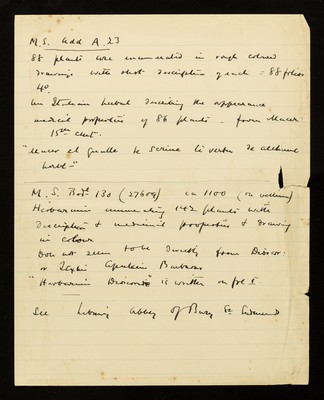 M.S. Add A 23
88 plants are enumerated in rough coloured
drawings with short description of each = 88 folios
4o
An Italian herbal describing the appearance
medicinal properties of 86 plants - from Macer
15th cent.
"Macer et quelle
M.S. Bodl 130 (27609) ca 1100 (on vellum)
Herbarium enumerating 142 plants with
description & medicinal properties & drawing
in colour
Does not seem to be directly from Dioscor:
or Apuleius Barbarus
"Herbarium Dioscoridis" is written on fol I
See Library Abbey of Bury St Edmunds